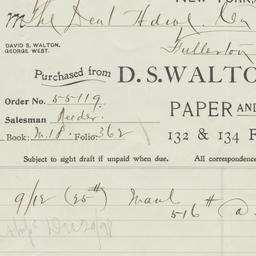 NEW YORK,
M The Dent Hdwe. Co
DAVID S. WALTON,
GEORGE WEST.
Fullerton
Purchased from D. S. WALTO
Order No. 55119
PAPER AND
Salesman Reeder
Book: M.18 Folio: 362
132 & 134 F
Subject to sight draft if unpaid when due. All correspondenc
9/12 (25#) Manl
516# @